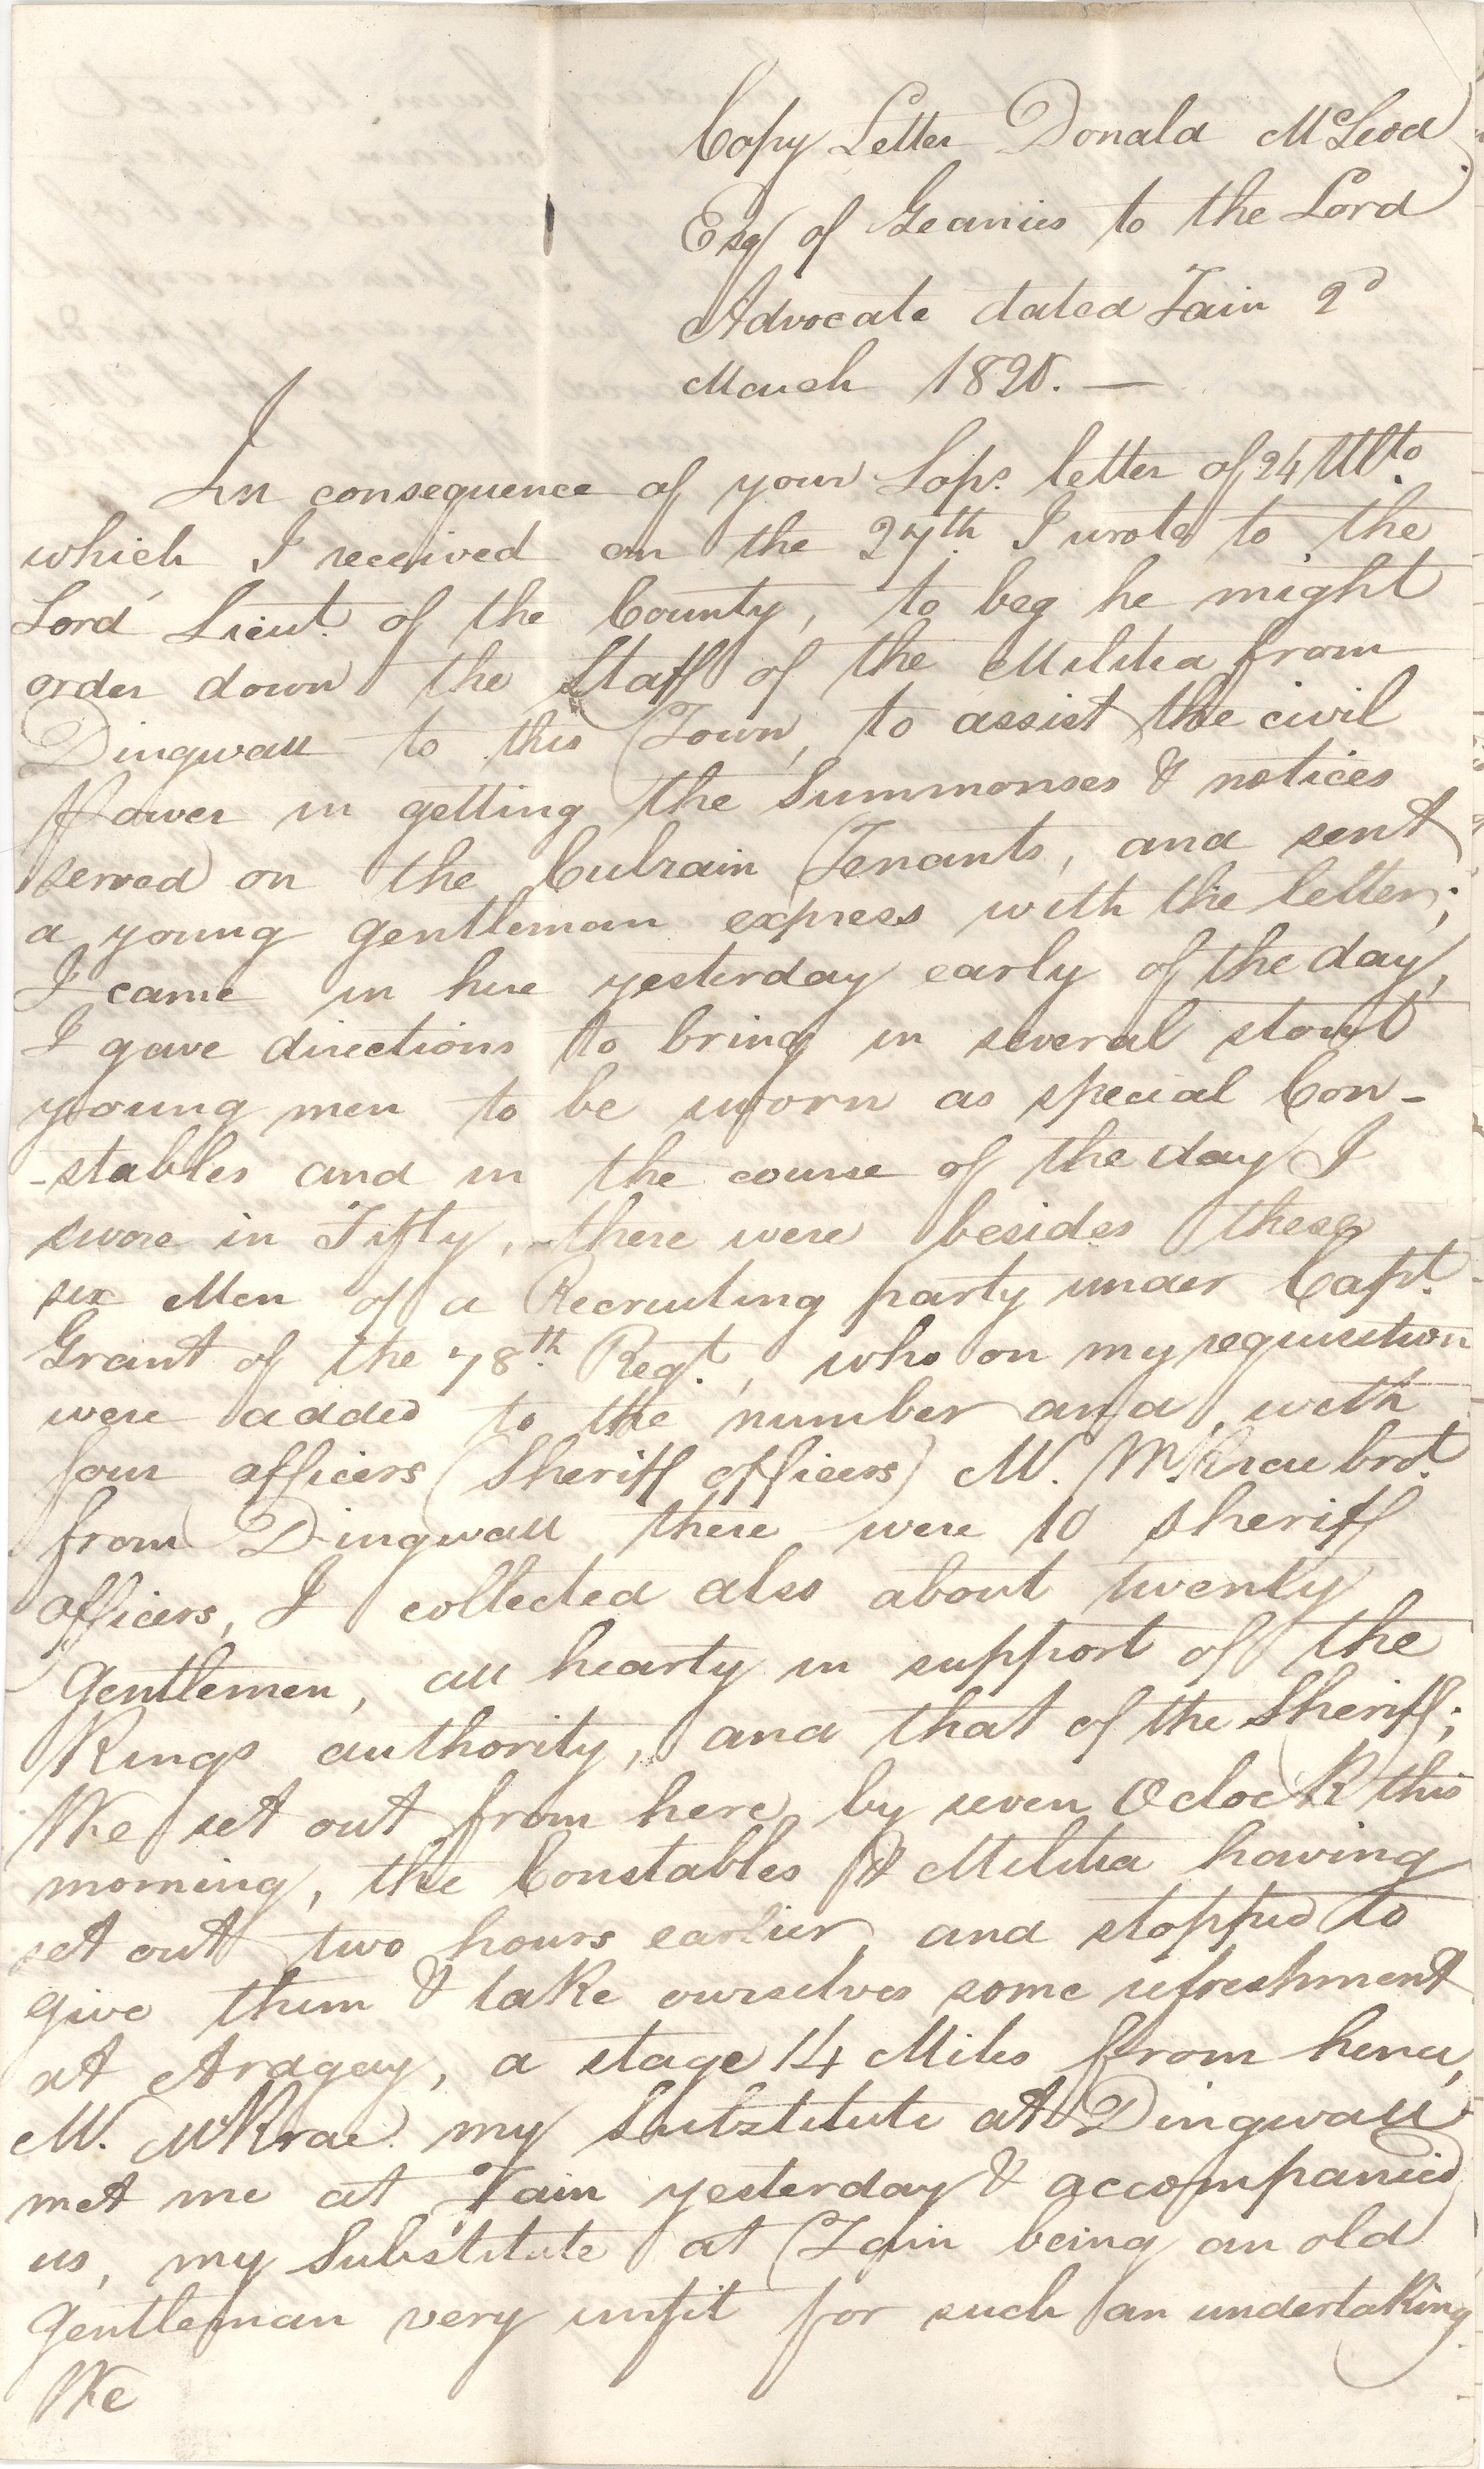 Copy Letter Donald McLeod
Esq of Geanies to the Lord
Advocate dated Tain 2d
March 1820. —
In consequence of your Lops. letter of 24 Ulto.
which I received on the 27th. I wrote to the
Lord Lieut. of the County, to beg he might
order down the Staff of the Militia from
Dingwall to this Town, to assist the civil
Power in getting the Summonses & notices
served on the Culrain Tenants, and sent
a young gentleman express with the letter;
I came in here yesterday early of the day,
I gave directions to bring in several stout
young men to be sworn as special Con-
-stables and in the course of the day I
swore in Fifty, there were besides these
six Men of a Recruiting party under Capt.
Grant of the 78th. Regt., who on my requisition
were added to the number and, with
four officers (Sheriff officers) M. McKrae brot.
from Dingwall there were 10 sheriff
officers, I collected also about twenty
Gentlemen, all hearty in support of the
Kings authority, and that of the Sheriff;
We set out from here, by seven OClock this
morning, the Constables & Militia having
set out two hours earlier, and stopped to
give them & take ourselves some refreshment
at Ardgay, a stage 14 Miles from hence,
M. McKrae my Substitute at Dingwall
met me at Tain yesterday & accompanied
us, my Substitute at Tain being an old
Gentleman very unfit for such an undertaking.
We